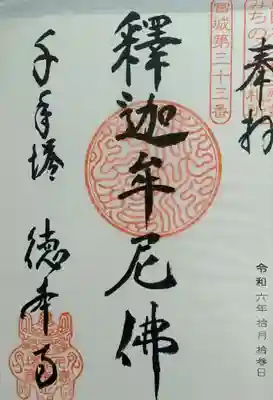 奉拝
宮城第三十三番
釋迦牟尼佛
令和六年拾月拾参日
千手塔 徳本寺